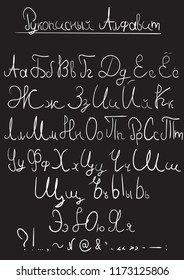 Рукописный Алфавит
Аа Бб Вв Гг Дд Ее Ёё
Жж Зз Ии Йй Кк
Лл Мм Нн Оо Пп Рр Сс Тт
Уу Фф Хх Цц Чч Шш
Щщ Ъъ Ыы Ьь
Ээ Юю Яя
?!,..~ № @ & · «» -- : ;
1173125806